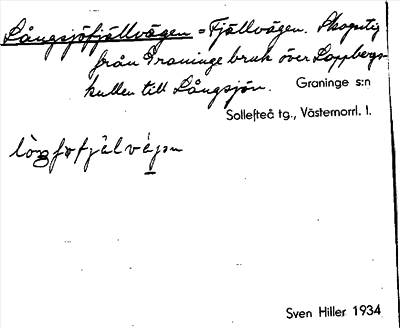 Långsjöfjällvägen = Fjällvägen. Skogstig
från Graninge bruk över Lappbergs-
kullen till Långsjön. Graninge s:n
Sollefteå tg., Västernorrl. l.
Sven Hiller 1934